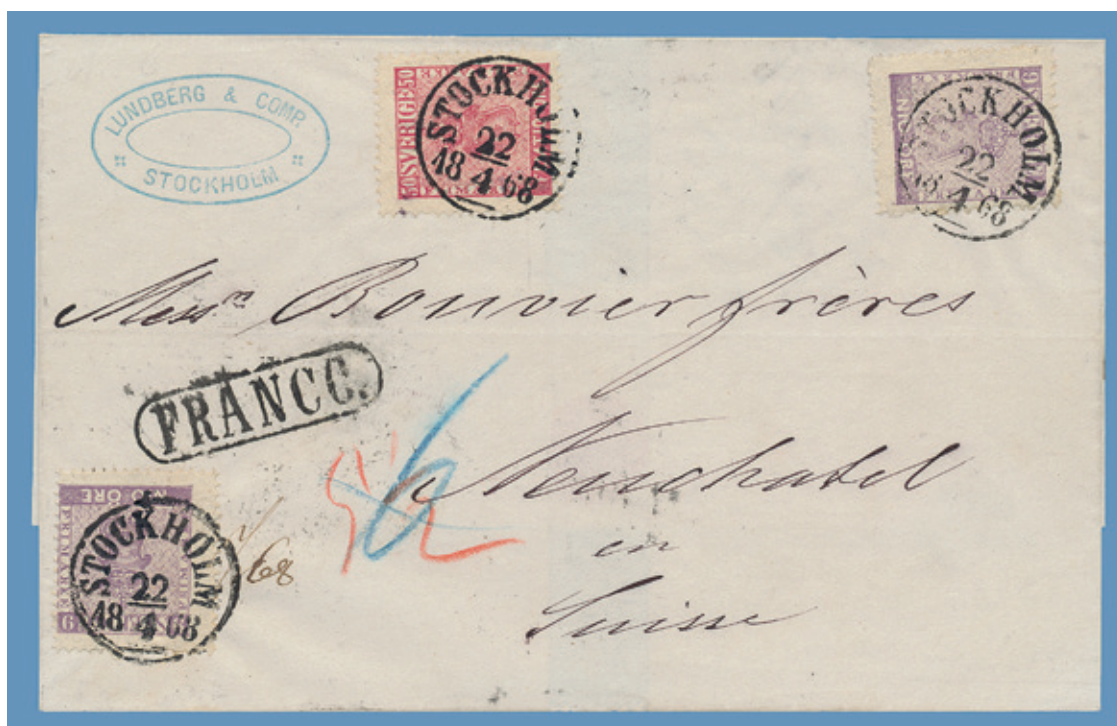 LUNDBERG & COMP.
STOCKHOLM
50 SVERIGE 50
FRIMÄRKE
STOCKHOLM
22
18 4 68
STOCKHOLM
22
18 4 68
Mess.rs Bouvier frères
FRANCO.
Neuchatel
en
Suisse
NIO ÖRE
FRIMÄRKE
9
STOCKHOLM
22
18 4 68
/68